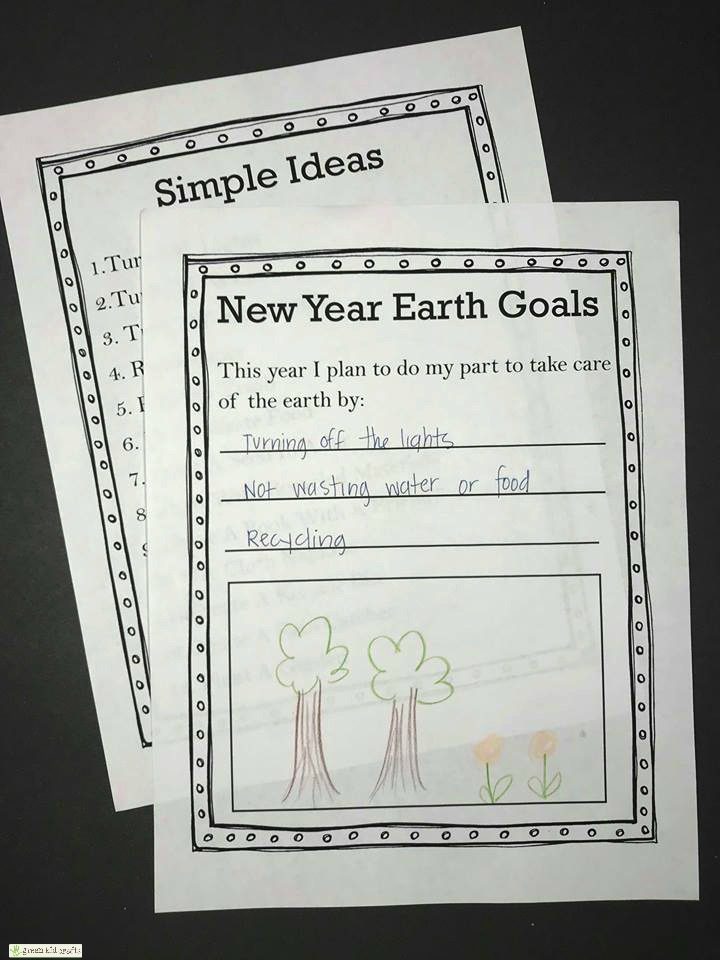 Simple Ideas
1.Tur
2.Tu
3. T
4. R
5.
6.
7.
8
New Year Earth Goals
This year I plan to do my part to take care
of the earth by:
Turning off the lights
Not wasting water or food
Recycling
green kid crafts